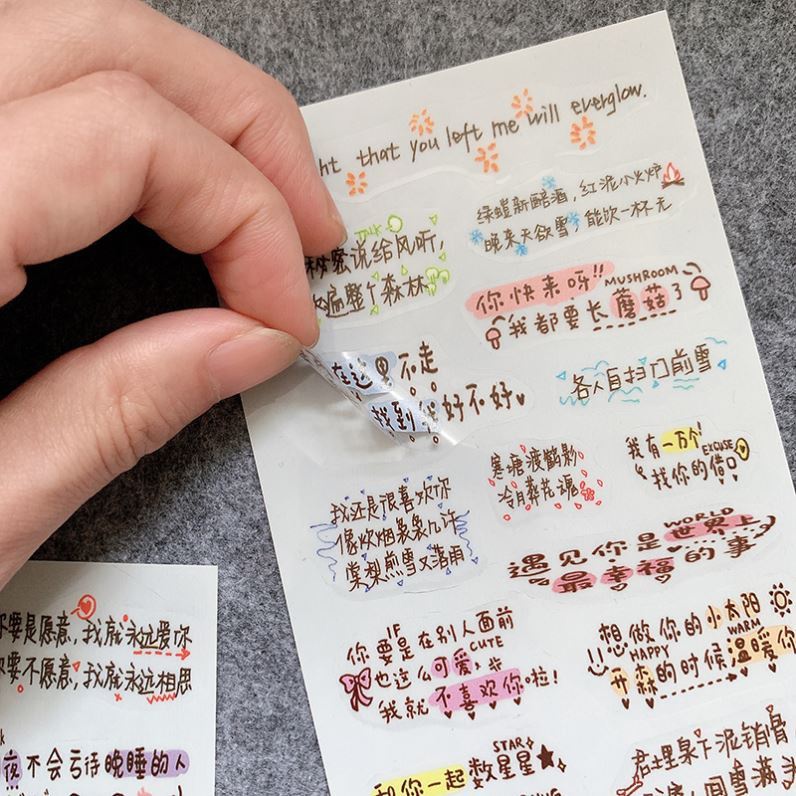 ht that you left me will everglow.
绿螘新醅酒，红泥小火炉
晚来天欲雪，能饮一杯无
TALK
秘密说给风听，
遍整个森林
你快来呀!!
MUSHROOM
我都要长蘑菇了
在这里不走
找到你好不好
各人自扫门前雪
寒塘渡鹤影
冷月葬花魂
我有一万个
EXCUSE
找你的借口
我还是很喜欢你
像炊烟袅袅几许
棠梨煎雪又落雨
WORLD
遇见你是世界上
最幸福的事
IF
你要是在别人面前
CUTE
也这么可爱,
我就不喜欢你啦!
想做你的小太阳
HAPPY WARM
开森的时候温暖你
STAR
和你一起数星星
君埋泉下泥销骨
雪满头
你要是愿意，我就永远爱你
你要不愿意，我就永远相思
夜不会亏待晚睡的人